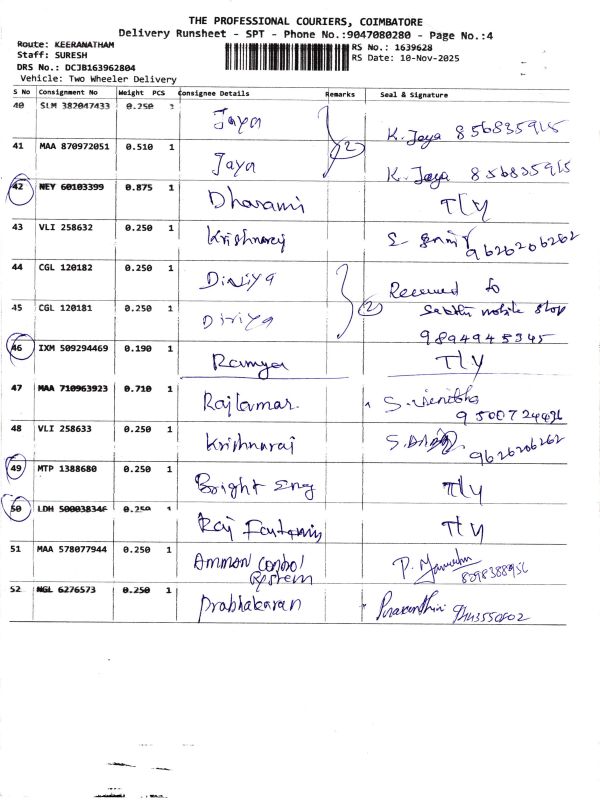 THE PROFESSIONAL COURIERS, COIMBATORE
Delivery Runsheet - SPT - Phone No.:9047080280 - Page No.:4
Route: KEERANATHAM
Staff: SURESH
DRS No.: DCJB163962804
Vehicle: Two Wheeler Delivery
RS No.: 1639628
RS Date: 10-Nov-2025
S No Consignment No Weight PCS Consignee Details Remarks Seal & Signature
40 SLM 382047433 0.250 Jaya K. Jaya 856835915
41 MAA 870972051 0.510 1 Jaya (2) K. Jaya 856835915
42 NEY 60103399 0.875 1 Dharani
43 VLI 258632 0.250 1 Krishnaraj 9626206262
44 CGL 120182 0.250 1 Diviya Received to
45 CGL 120181 0.250 1 Diviya (2) mobile shop
9894945345
46 IXM 509294469 0.190 1 Ramya
47 MAA 710963923 0.710 1
48 VLI 258633 0.250 1 Krishnaraj 9626206262
49 MTP 1388680 0.250 1 Bright Eng
50 LDH 50003834 0.250 1 Raj
51 MAA 578077944 0.250 1 Ammon Control System
52 NGL 6276573 0.250 1 Prabhakaran